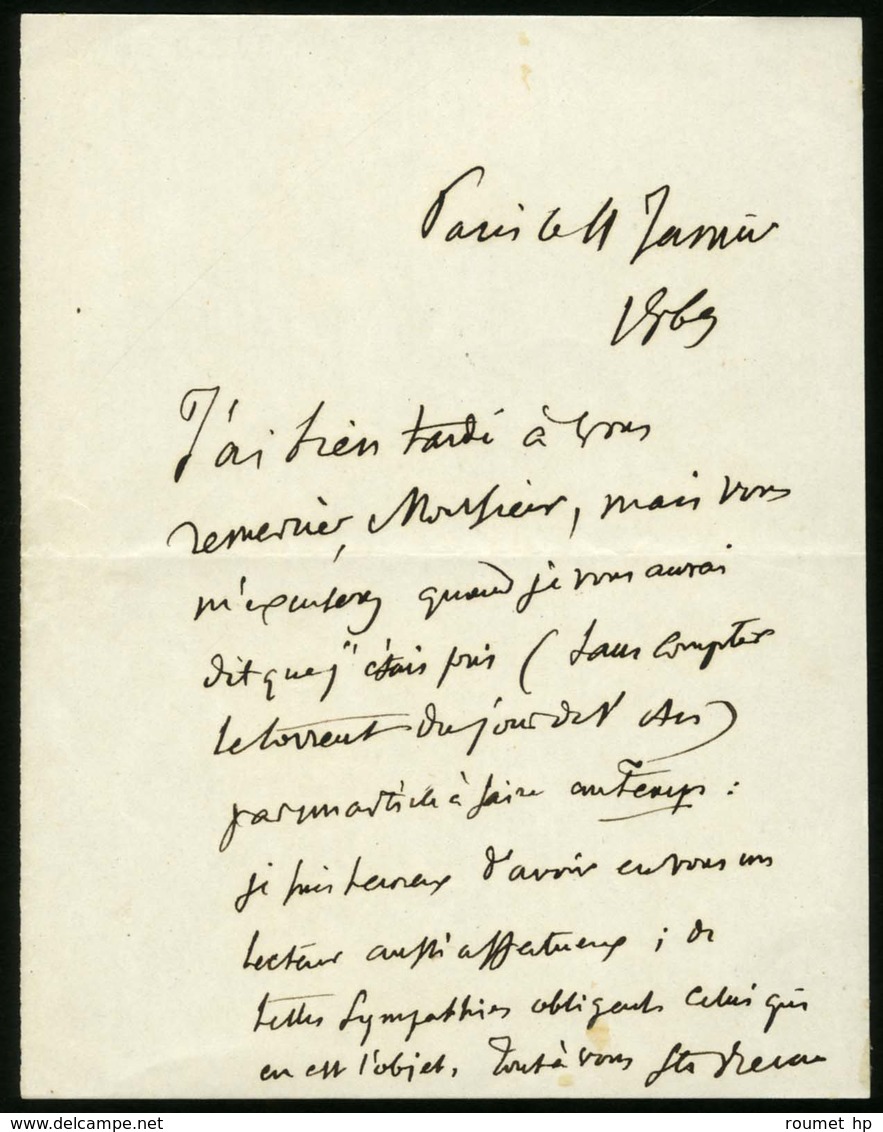 Paris ce 11 Janvier
1869
J'ai bien tardé à vous
remercier, Monsieur, mais vous
m'excuserez quand je vous aurai
dit que j'étais pris (sans compter
le torrent du jour de l'An)
par un article à faire au Temps :
je suis heureux d'avoir en vous un
lecteur aussi affectueux ; de
telles sympathies obligent celui qui
en est l'objet. Tout à vous Ste Beuve
www.delcampe.net
roumet hp